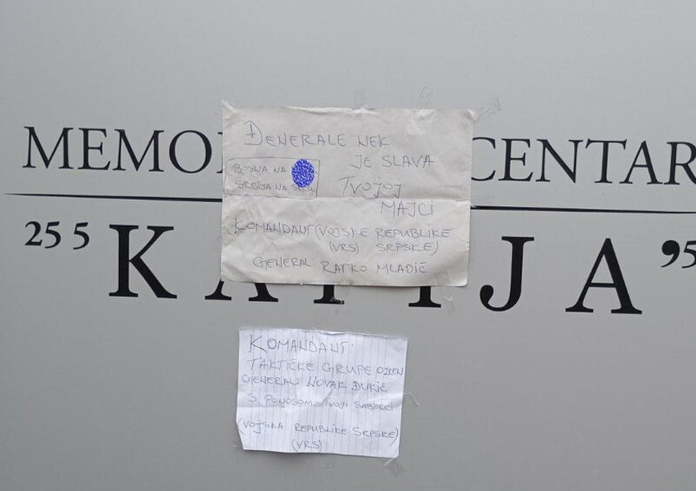 MEMO CENTAR
25 5 KAPIJA 95
ĐENERALE NEK
JE SLAVA
BOSNA NA
SRBIJA NA
TVOJOJ
MAJCI
KOMANDANT (VOJSKE REPUBLIKE
(VRS) SRPSKE)
GENERAL: RATKO MLADIĆ
KOMANDANT:
TAKTIČKE GRUPE OZREN
GENERAL: NOVAK ĐUKIĆ
S PONOSOM TVOJI SABORCI
(VOJSKA REPUBLIKE SRPSKE)
(VRS)